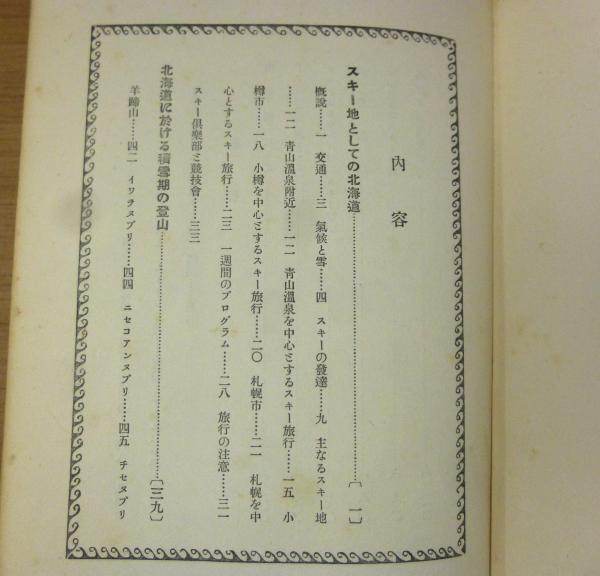 內容
スキー地としての北海道……………………………〔一〕
槪說……一　交通……三　氣候と雪……四　スキーの發達……九　主なるスキー地
……一二　靑山溫泉附近……一二　靑山溫泉を中心とするスキー旅行……一五　小
樽市……一八　小樽を中心とするスキー旅行……二〇　札幌市……二一　札幌を中
心とするスキー旅行……二三　一週間のプログラム……二八　旅行の注意……三一
スキー俱樂部と競技會……三三
北海道に於ける積雪期の登山……………………………〔三九〕
羊蹄山……四二　イワヲヌプリ……四四　ニセコアンヌプリ……四五　チセヌプリ